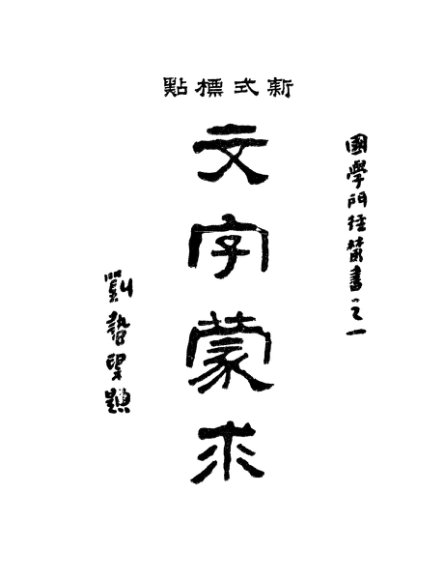 新式標點
國學門徑叢書之一
文字蒙求
劉望題